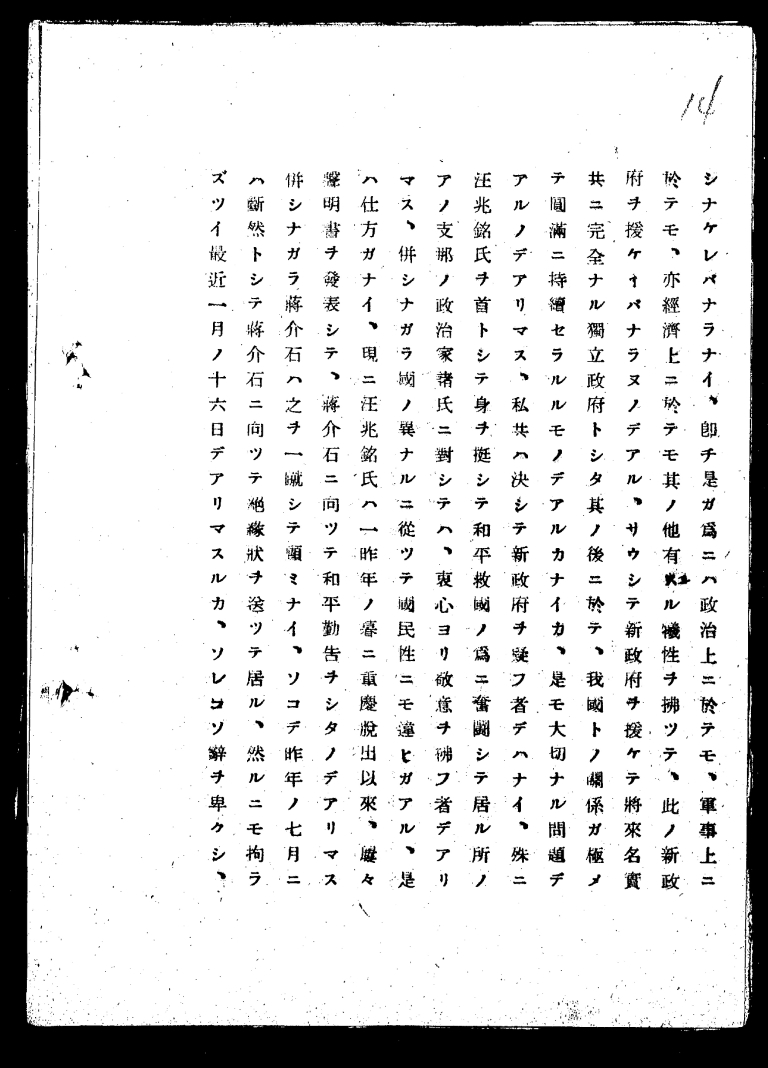 14
シナケレバナラナイ、卽チ是ガ爲ニハ政治上ニ於テモ、軍事上ニ
於テモ、亦經濟上ニ於テモ其ノ他有ユル犧性ヲ拂ツテ、此ノ新政
府ヲ援ケイバナラヌノデアル、サウシテ新政府ヲ援ケテ將來名實
共ニ完全ナル獨立政府トシタ其ノ後ニ於テ、我國トノ關係ガ極メ
テ圓滿ニ持續セラルルモノデアルカナイカ、是モ大切ナル問題デ
アルノデアリマス、私共ハ決シテ新政府ヲ疑フ者デハナイ、殊ニ
汪兆銘氏ヲ首トシテ身ヲ挺シテ和平救國ノ爲ニ奮鬪シテ居ル所ノ
アノ支那ノ政治家諸氏ニ對シテハ、衷心ヨリ敬意ヲ拂フ者デアリ
マス、併シナガラ國ノ異ナルニ從ツテ國民性ニモ違ヒガアル、是
ハ仕方ガナイ、現ニ汪兆銘氏ハ一昨年ノ暮ニ重慶脫出以來、屢々
聲明書ヲ發表シテ、蔣介石ニ向ツテ和平勸告ヲシタノデアリマス
併シナガラ蔣介石ハ之ヲ一蹴シテ顧ミナイ、ソコデ昨年ノ七月ニ
ハ斷然トシテ蔣介石ニ向ツテ絕緣狀ヲ送ツテ居ル、然ルニモ拘ラ
ズツイ最近一月ノ十六日デアリマスルカ、ソレコソ辭ヲ卑クシ、